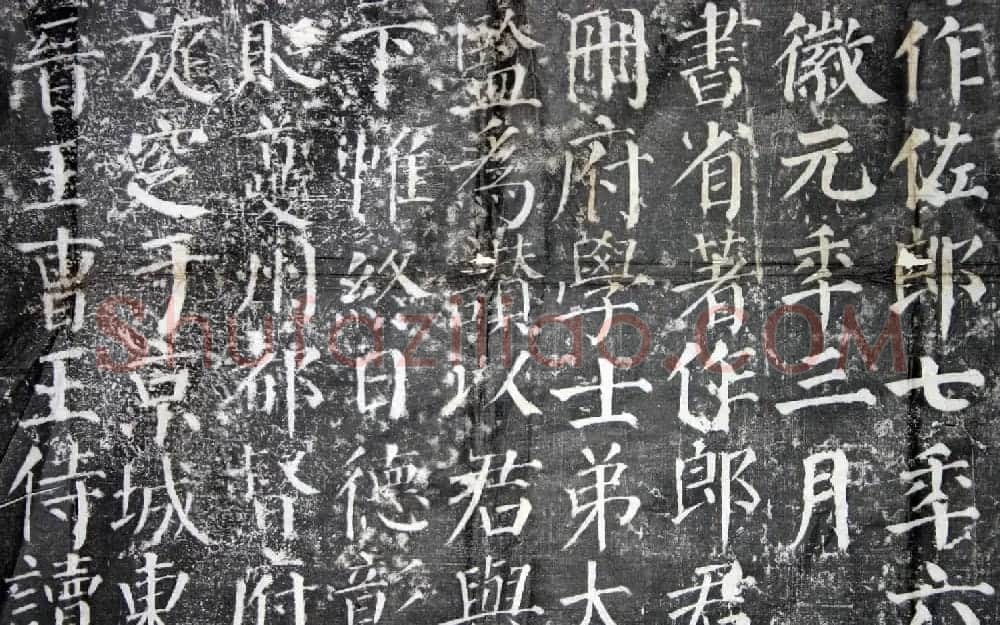 作佐郎七年六
徽元年三月
書省著作郎君
冊府學士弟大
監為讚以君與
下帷終日德彰
貶夔州都督府
旋窆于京城東
晉王曹王侍讀
Shufaziliao.COM